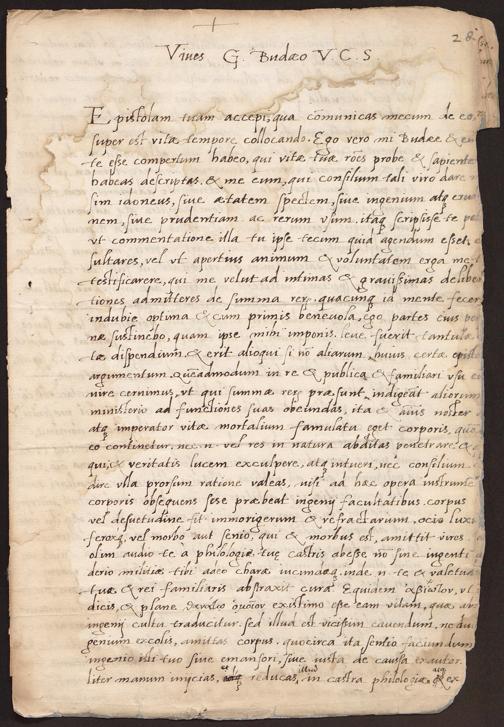 28
Viues G. Budæo V. C. S
Epistolam tuam accepi, qua cōmunicas mecum de eo,
super est vitæ tempore collocando. Ego vero mi Budæe &
te esse compertum habeo, qui vitæ tuæ rōes probe & sapiente
habeas descriptas. & me eum, qui consilium tali viro dare n
sim idoneus, siue ætatem spectem, siue ingenium atq
nem, siue prudentiam ac rerum vsum. itaq scripsisse te
vt commentatione illa tu ipse tecum quid agendum esset,
sultares, vel vt apertius animum & voluntatem erga me
testificarere, qui me velut ad intimas & grauissimas delibe
tiones admitteres de summa rerū. quacunq id mente fecer
indubie optima & cum primis beneuola, ego partes eius
næ sustinebo, quam ipse mihi imponis. leue fuerit tantulæ
tæ dispendium, & erit alioqui si nō aliarum, huius certæ
argumentum. Queadmodum in re & publica & familiari vsu
nire cernimus, vt qui summæ rerū præsunt, indigeāt aliorum
ministerio ad functiones suas obeundas, ita & aīus noster
atq imperator vitæ mortalium famulatu eget corporis, quo
eo continetur. nec. n. vel res in natura abditas penetrare &
qui, & veritatis lucem exculpere, atq intueri, nec consilium
dare vlla prorsum ratione valeas, nisi ad hæc opera instrume
corporis obsequens sese præbeat ingenij facultatibus. corpus
vel desuetudine fit immorigerum & refractarium, ocio luxu
feroxq, vel morbo aut senio, qui & morbus est, amittit vires.
olim audio te a philologiæ tuę castris abesse nō sine ingenti
derio militiæ tibi adeo charæ iucundæq. inde. n. te & valetud
tuæ & rei familiaris abstraxit cura. Equidem vt
dicis, & plane existimo esse eam vitam, quæ
ingenij cultu traducitur. sed illud est vicissim cauendum, ne
genium excolis, amittas corpus. quocirca ita sentio faciundum
ingenio isti tuo siue emansori, siue iusta de caussa exautor
liter manum inijcias, reducas illud in castra philologiæ. ex